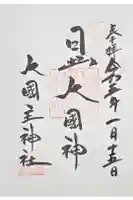 奉拝 令和 年 一月十五日
大國神
大國主神社